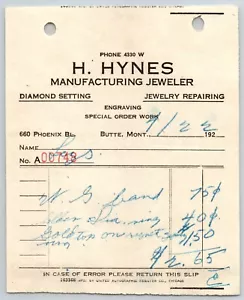 PHONE 4330 W
H. HYNES
MANUFACTURING JEWELER
DIAMOND SETTING JEWELRY REPAIRING
ENGRAVING
SPECIAL ORDER WORK
660 PHOENIX BL. BUTTE, MONT., 9/22 192
NAME
No. A 00799
W. G 75¢
40¢
Gold top on
1,50
$2.65
IN CASE OF ERROR PLEASE RETURN THIS SLIP